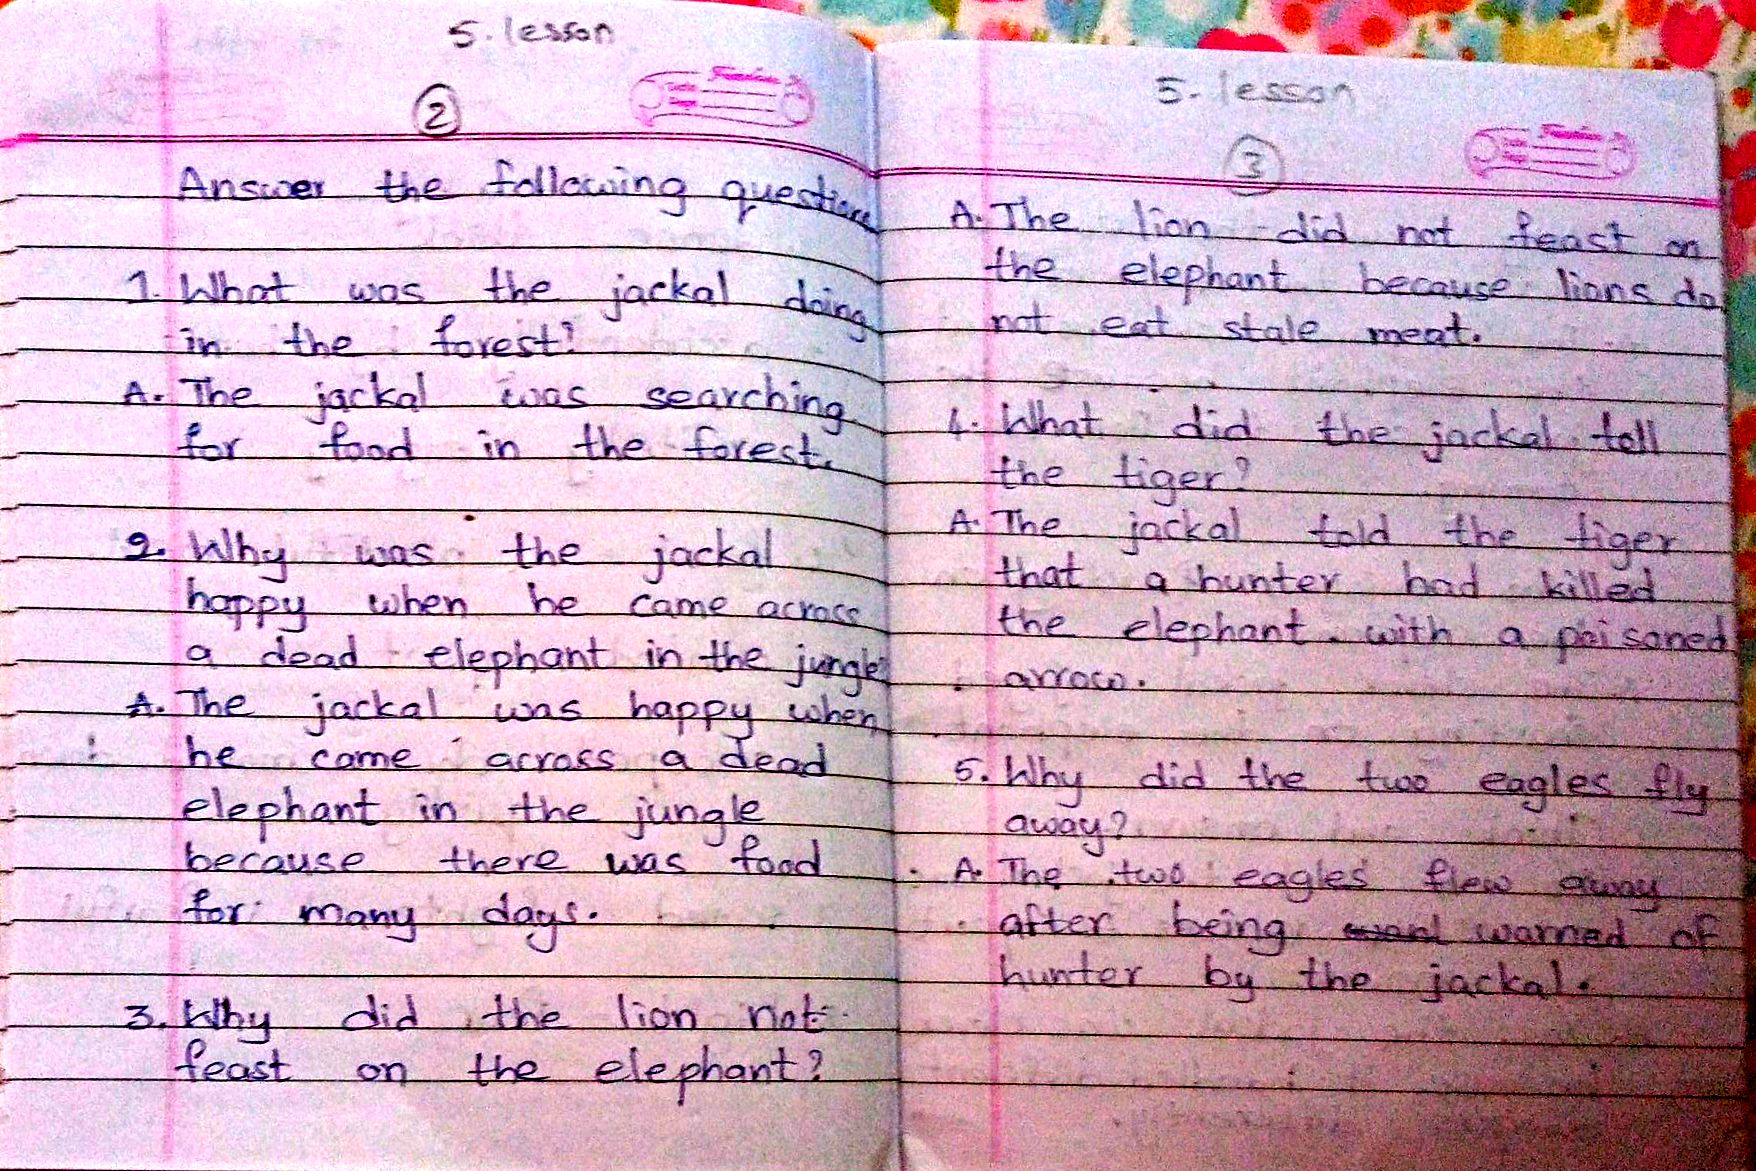 5. lesson
2
Answer the following questions
1. What was the jackal doing
in the forest?
A. The jackal was searching
for food in the forest.
2. Why was the jackal
happy when he came across
a dead elephant in the jungle
A. The jackal was happy when
he came across a dead
elephant in the jungle
because there was food
for many days.
3. Why did the lion not
feast on the elephant?
5. lesson
3
A. The lion did not feast on
the elephant because lions do
not eat stale meat.
4. What did the jackal tell
the tiger?
A. The jackal told the tiger
that a hunter had killed
the elephant with a poisoned
arrow.
5. Why did the two eagles fly
away?
A. The two eagles flew away
after being warned of
hunter by the jackal.